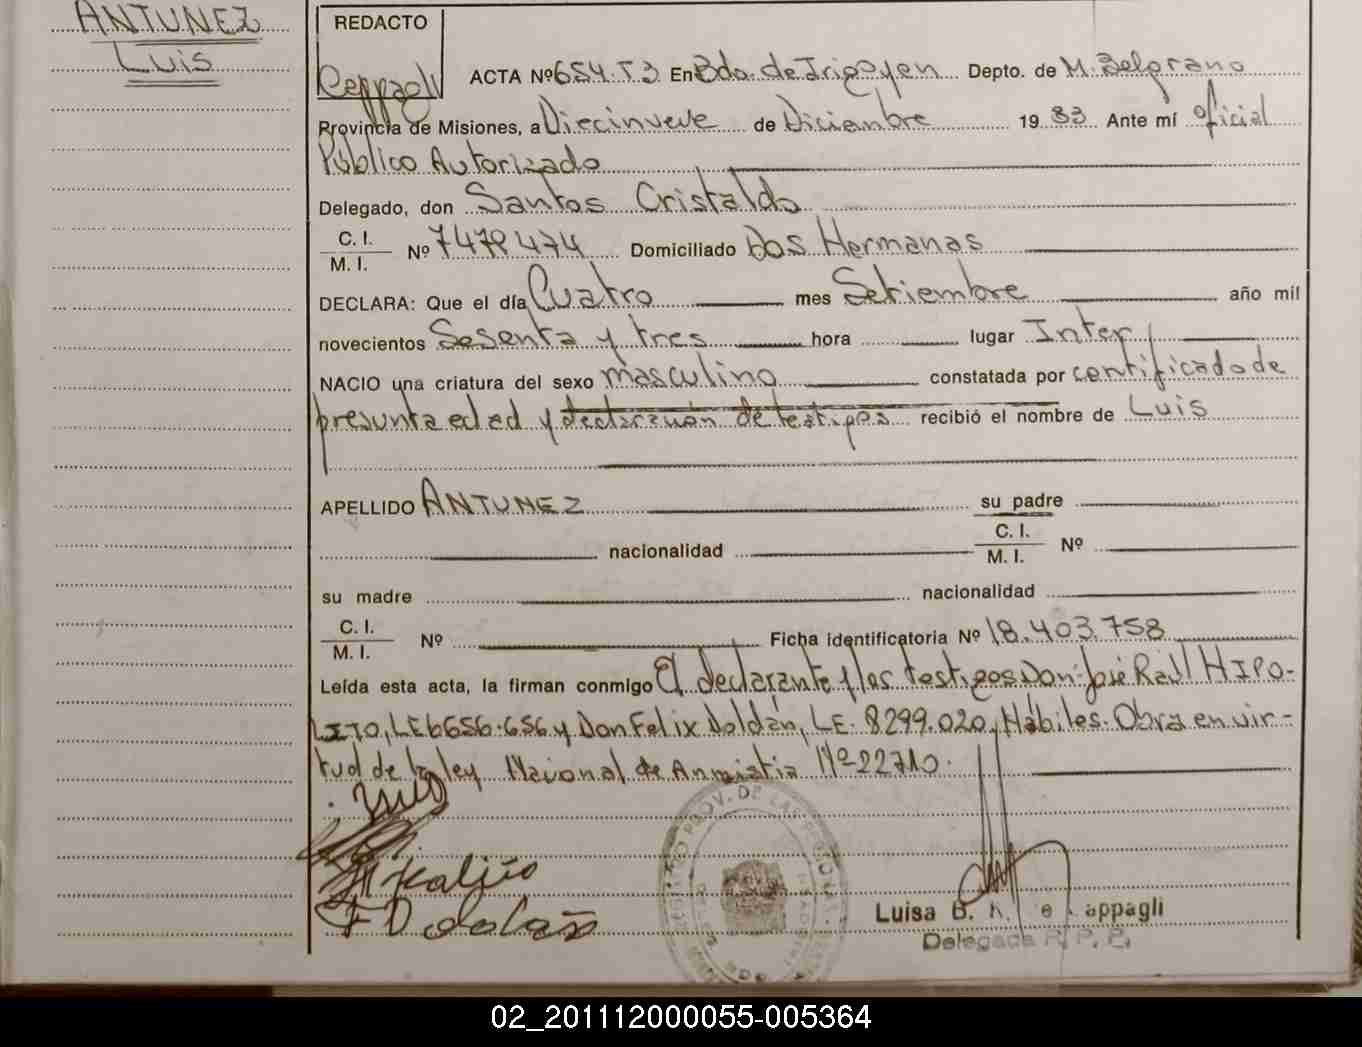 ANTUNEZ
Luis
REDACTO
Ceppagli
ACTA Nº 654. T3 En Bdo. de Irigoyen Depto. de M. Belgrano
Provincia de Misiones, a Diecinueve de Diciembre 19 83 Ante mí oficial
Público Autorizado
Delegado, don Santos Cristaldo
C. I.
M. I. Nº 7479474 Domiciliado Dos Hermanas
DECLARA: Que el día Cuatro mes Setiembre año mil
novecientos Sesenta y tres hora lugar Inter
NACIO una criatura del sexo masculino constatada por certificado de
presunta edad y declaración de testigos recibió el nombre de Luis
APELLIDO ANTUNEZ su padre
nacionalidad C. I.
M. I. Nº
su madre nacionalidad
C. I.
M. I. Nº Ficha identificatoria Nº 18.403.758
Leída esta acta, la firman conmigo El declarante y los testigos Don José Raúl HIPO-
LITO, LE 6656.656 y Don Felix Doldán, LE. 8299.020, Hábiles. Obra en vir-
tud de la ley Nacional de Amnistia Nº 22710.
F Doldan
PROV. DE LAS PERSONAS
Luisa B. K. de Ceppagli
Delegada R. P. P.
02_201112000055-005364